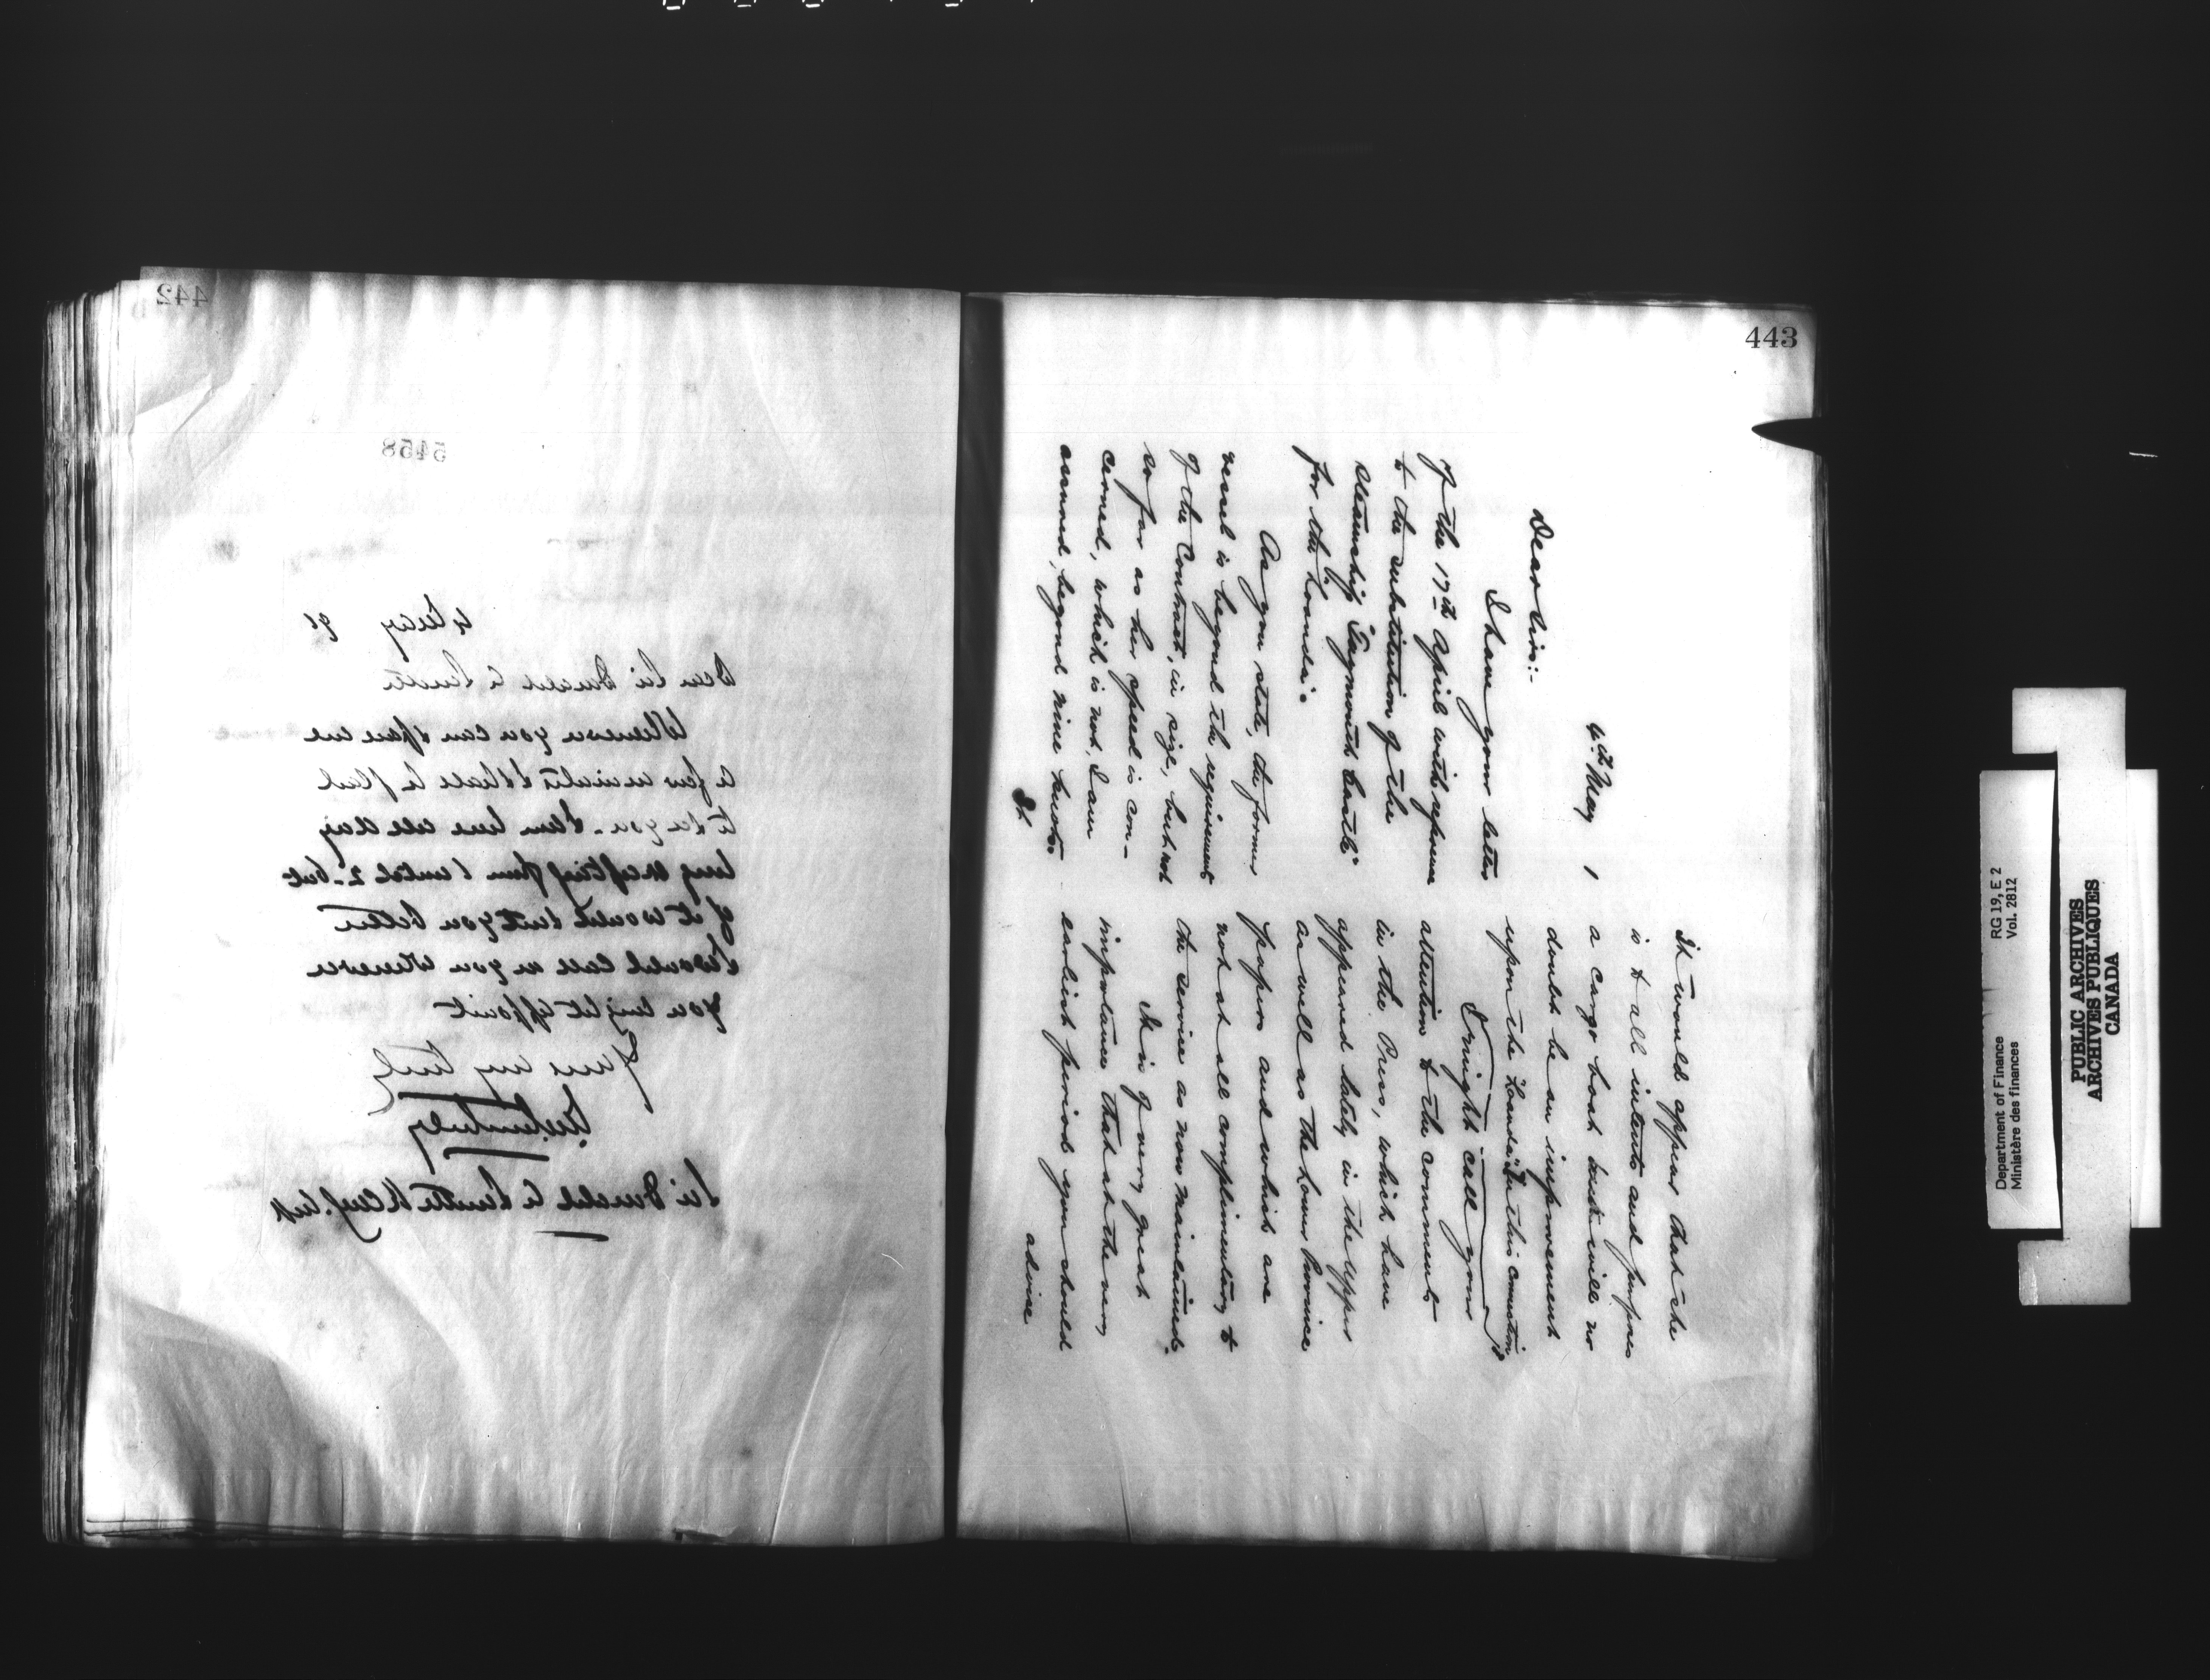 442
5458
4 May 91
Dear Sir Donald A Smith
Whenever you can spare me
a few minutes I shall be glad
to see you. I am here all day
long excepting from 1 until 2 - but
if it would suit you better
I would call on you whenever
you might appoint
Yours very truly
Sir Donald A Smith K.C.M.G.
443
4th May 1
Dear Sir:-
I have your letter
of the 17th April with reference
to the substitution of the
steamship "Taymouth Castle"
for the "Loanda".
As you state, the former
vessel is beyond the requirements
of the Contract, in size, but not
so far as her speed is con-
cerned, which is not, I am
assured, beyond nine knots.
It
It would appear that the
is to all intents and purposes
a cargo boat but will no
doubt be an improvement
upon the "Loanda". In this connection
I might call your
attention to the comments
in the Press, which have
appeared lately in the upper
as well as the Lower Province
papers and which are
not at all complimentary to
the service as now maintained.
It is of very great
importance that at the very
earliest period you should
advise
Department of Finance RG 19, E 2
Ministère des finances Vol. 2812
PUBLIC ARCHIVES
ARCHIVES PUBLIQUES
CANADA